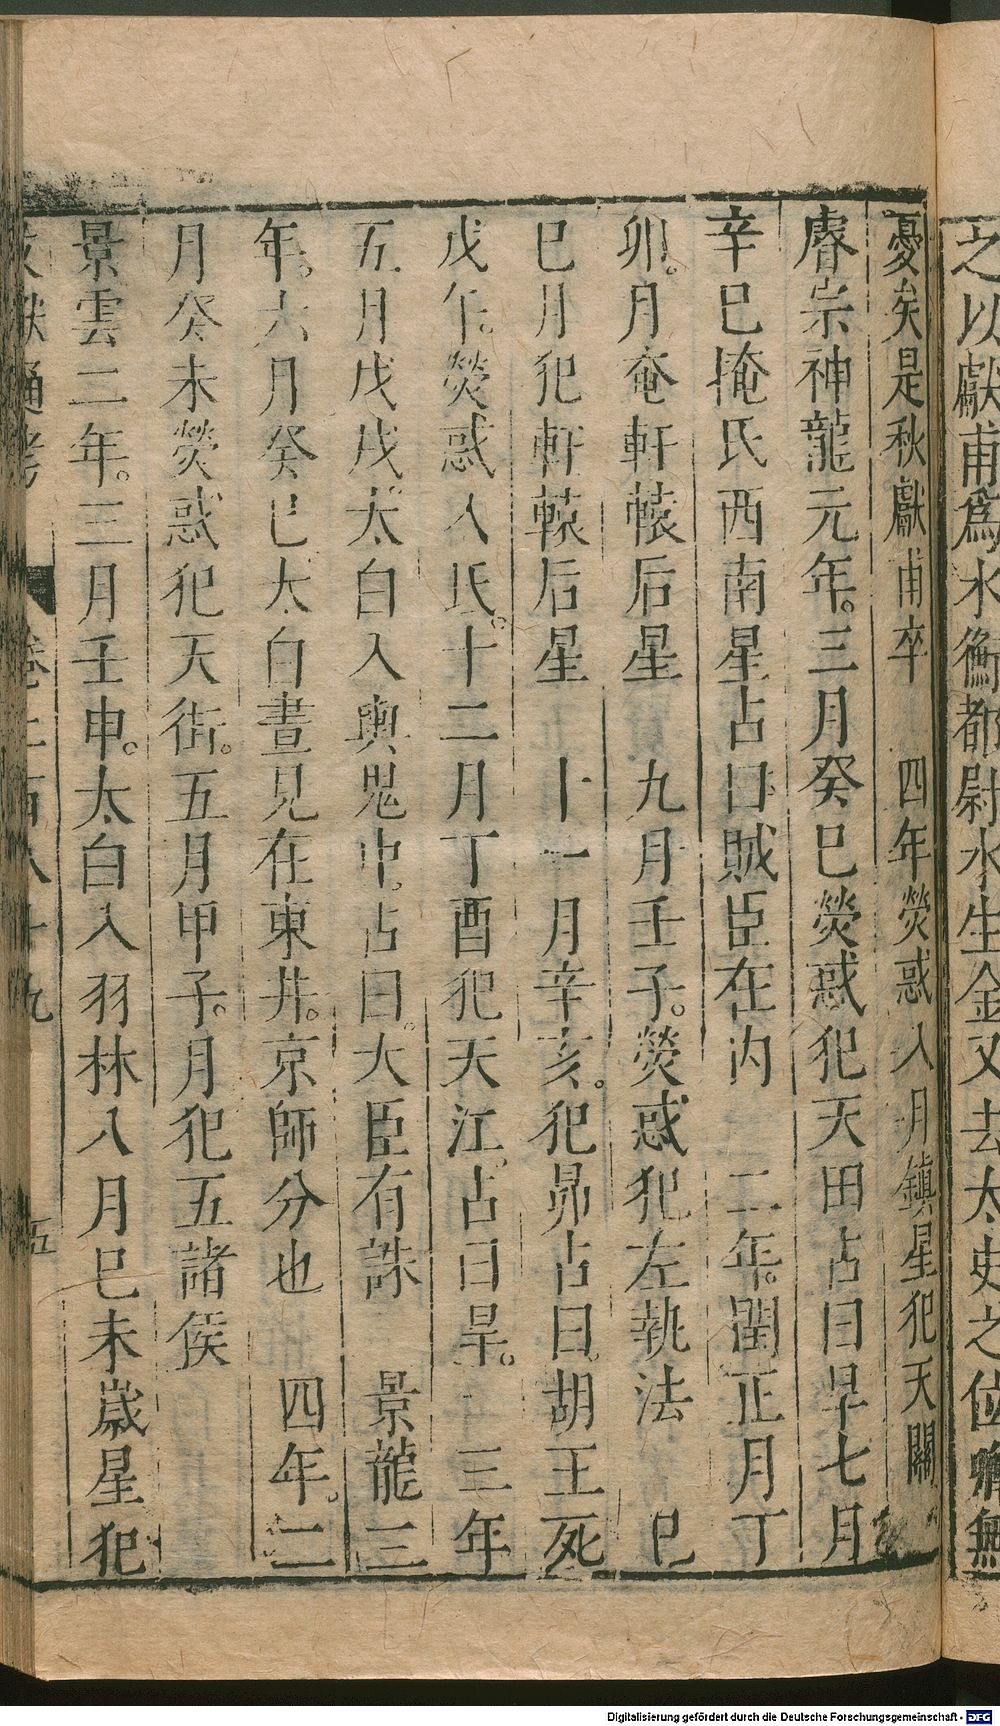 之以獻甫爲水衡都尉水生金又去太史之位卿無
憂矣是秋獻甫卒　四年熒惑入月鎮星犯天關
睿宗神龍元年。三月癸巳熒惑犯天田占曰旱七月
辛巳掩氐西南星占曰賊臣在内　二年。閏正月丁
卯。月奄軒轅后星　九月壬子。熒惑犯左執法　己
巳月犯軒轅后星　十一月辛亥。犯昴占曰。胡王死
戊午。熒惑入氐。十二月丁酉犯天江。占曰旱。　三年
五月戊戌太白入輿鬼中。占曰。大臣有誅　景龍三
年。六月癸巳太白晝見在東井。京師分也　四年。二
月癸未熒惑犯天街。五月甲子。月犯五諸侯
景雲二年。三月壬申。太白入羽林八月己未歲星犯
文獻通考　卷二百八十九　五
Digitalisierung gefördert durch die Deutsche Forschungsgemeinschaft - DFG